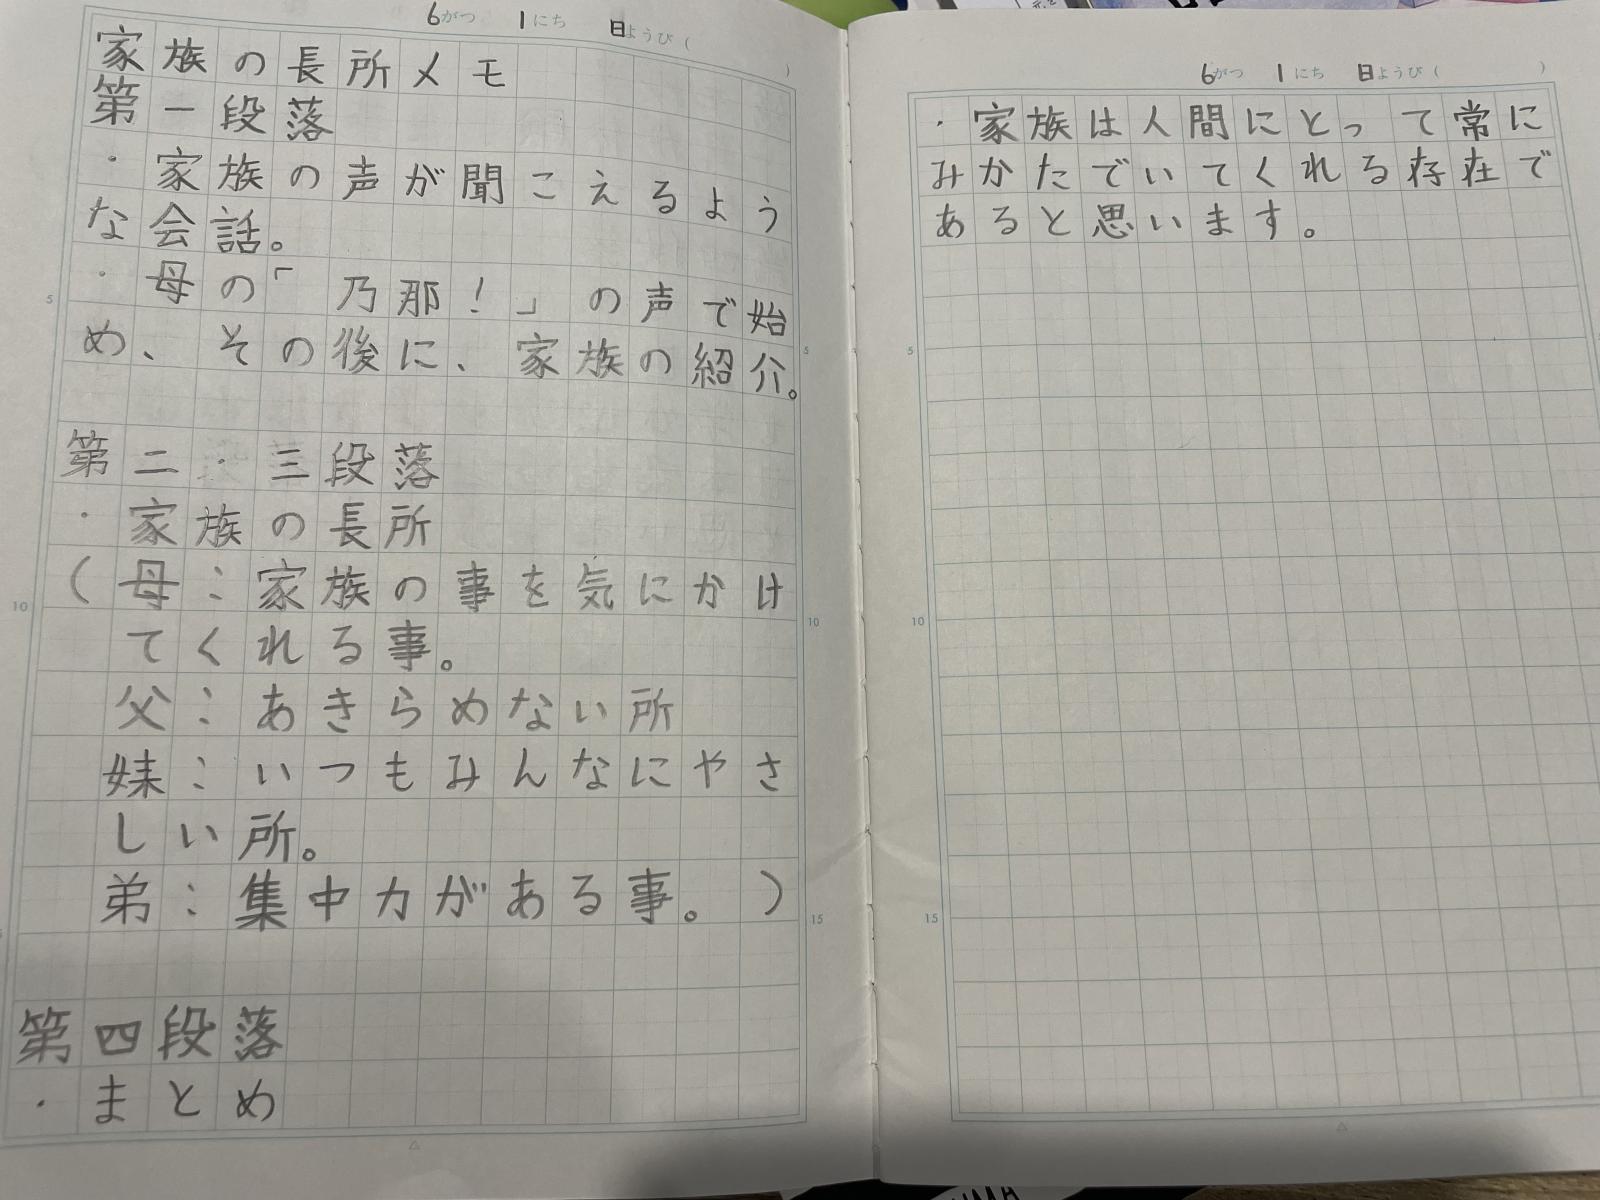 6がつ 1にち 日ようび( )
家族の長所メモ
第一段落
・家族の声が聞こえるよう
な会話。
・母の「乃那!」の声で始
め、その後に、家族の紹介。
第二・三段落
・家族の長所
(母:家族の事を気にかけ
てくれる事。
父:あきらめない所
妹:いつもみんなにやさ
しい所。
弟:集中力がある事。)
第四段落
・まとめ
5
10
5
10
15
6がつ 1にち 日ようび( )
・家族は人間にとって常に
みかたでいてくれる存在で
あると思います。
5
10
15